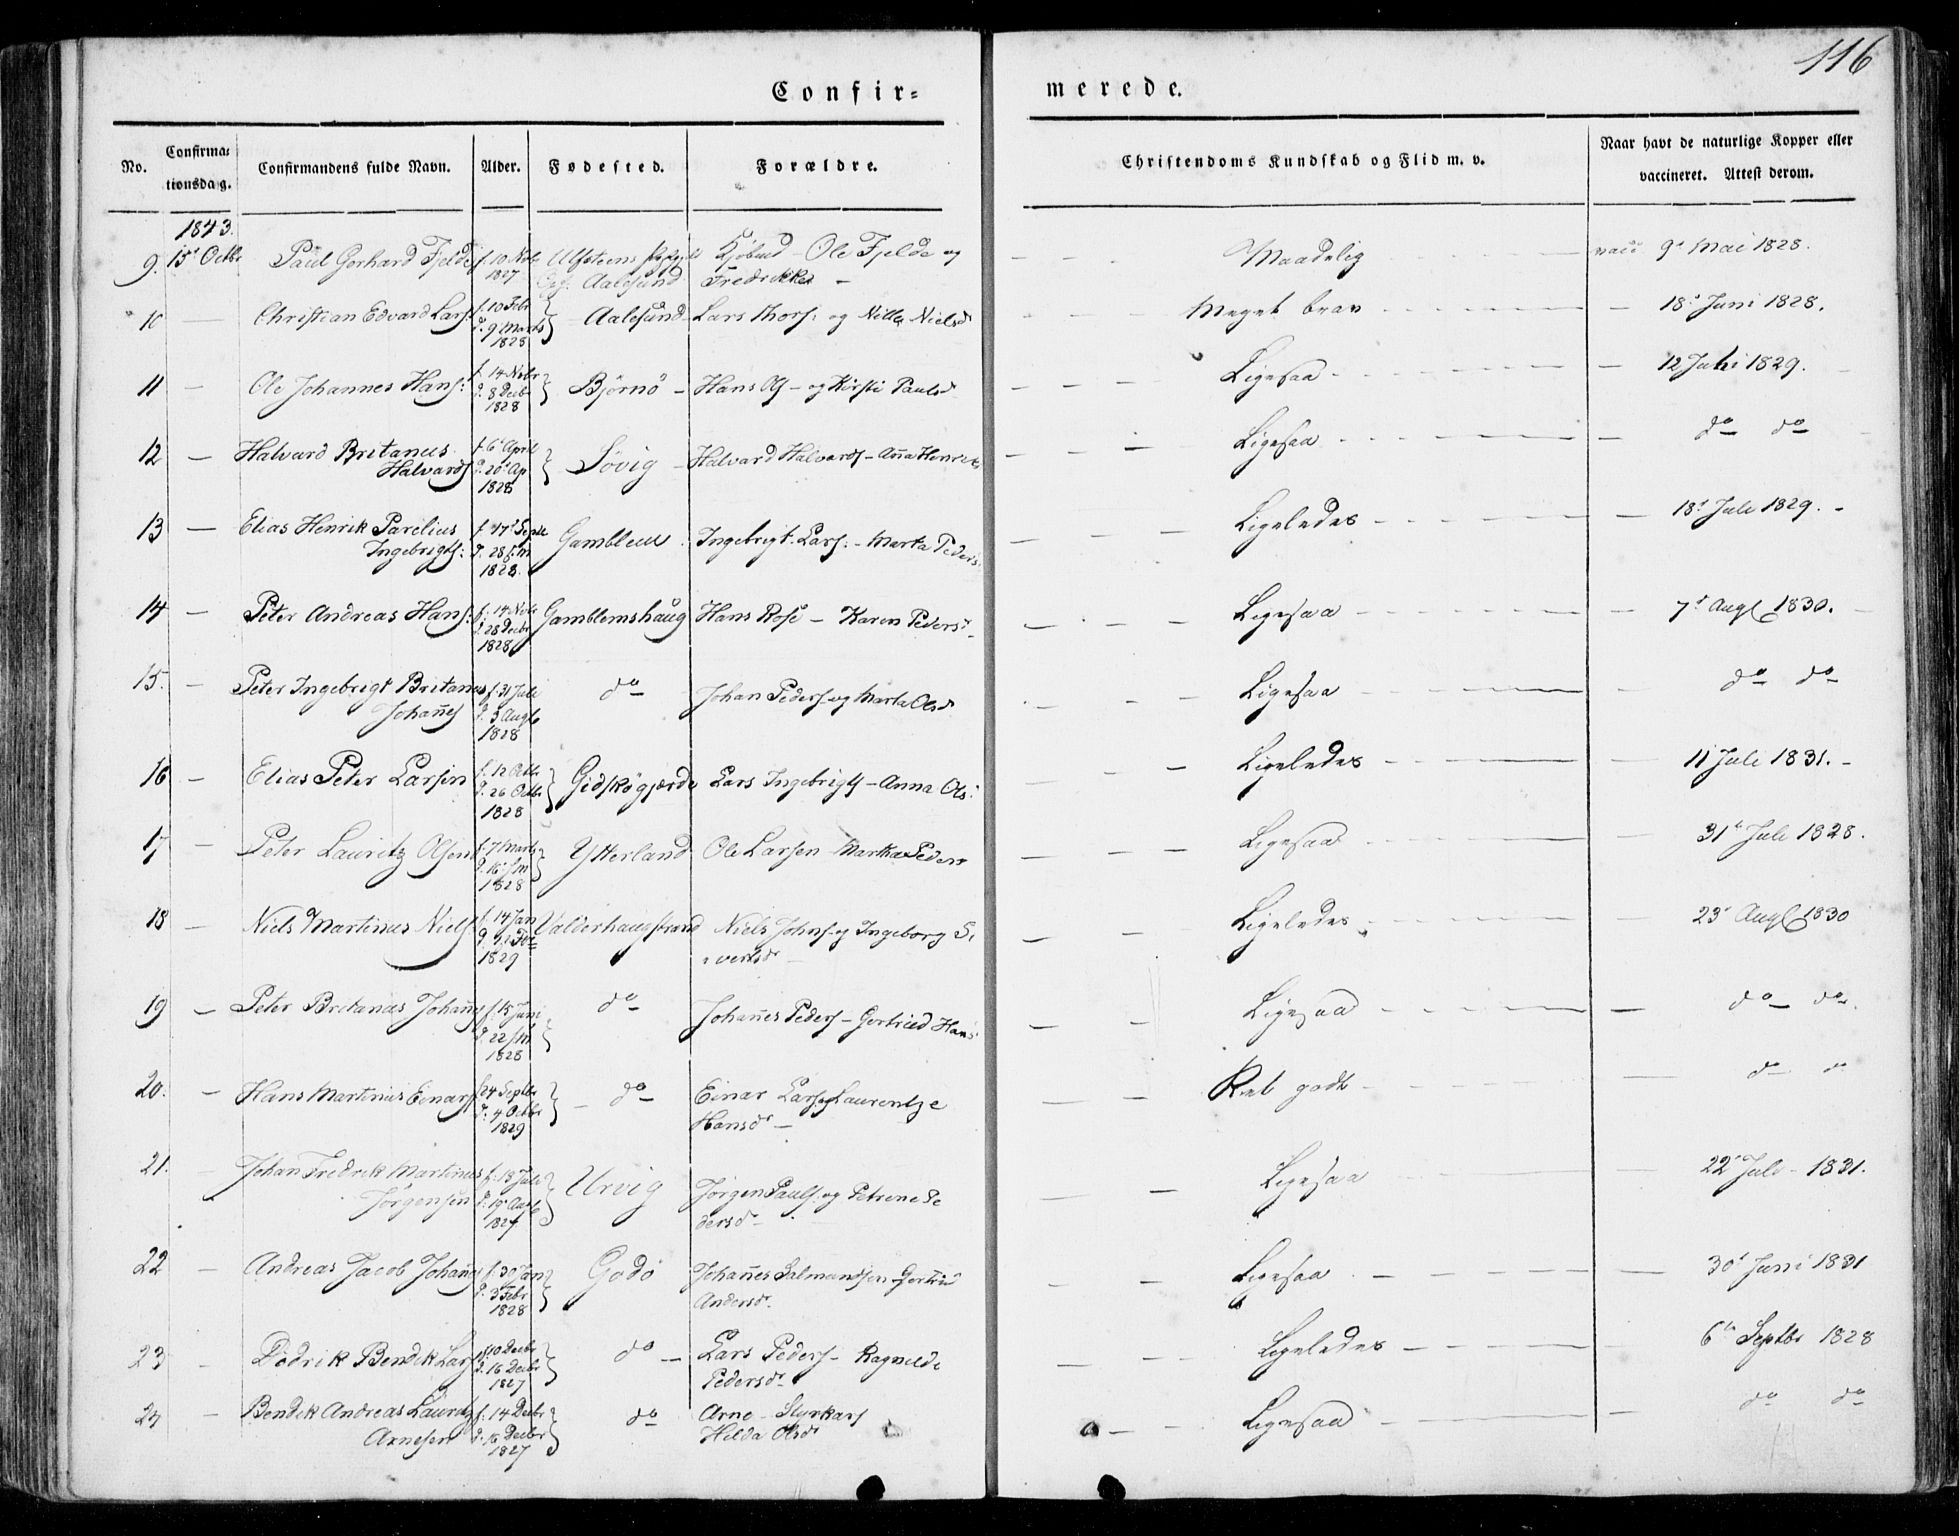 116
Confir=
merede.
No.
Confirma=
tionsdag.
Confirmandens fulde Navn.
Alder.
Fødested.
Forældre.
Christendoms Kundskab og Flid m. v.
Naar havt de naturlige Kopper eller
vaccineret. Attest derom.
1843.
9. 15d Octbr Paul Gerhard Fjelde f. 10 Nvbr
1827
Aalesund
Ole Fjelde og
Fredrikke
Maadelig
vacc 9d Mai 1828.
10 — Christian Edvard Lars: f. 10 Febr
d. 9 Marts
1828
Aalesund Lars Thors: og Nille Nielsd
Meget brav
18d Juni 1828.
11 — Ole Johannes Hans: f. 14 Nvbr
d. 8 Decbr
1828
Bjørnø — Hans Ols — og Kirsti Paulsd
Ligesaa
12 Juli 1829.
12 — Halvard Britanus
Halvards
f. 6d April
d. 20d Ap
1828
Søvig — Halvard Halvards — Anna Henriks
Ligesaa
do do
13 — Elias Henrik Parelius
Ingebrigts:
f. 17d Septbr
d. 28 s.M
1828.
Gamblem Ingebrigt Lars: — Marta Peders
Ligeledes
18d Juli 1829.
14 — Peter Andreas Hans: f. 14 Nvbr
d. 28 Decbr
1828
Gamblemshaug Hans Rose — Karen Pedersd
Ligesaa
7d Augt 1830.
15. — Peter Ingebrigt Britanus
Johañes
f. 31 Juli
d. 3 Augt
1828
do Johan Peders og Marta Olsd
Ligesaa
do do
16 — Elias Peter Larsen f. 12 Octbr
d. 26 Octbr
1828
Gidskøgjærde Lars Ingebrigts — Anna Ols:
Ligeledes
11 Juli 1831.
17 — Peter Lauritz Olsen f. 7 Marts
d. 16 s.M
1828
Ytterland Ole Larsen — Martha Peders
Ligesaa
31te Juli 1828.
18 — Niels Martinus Niels: f. 14 Jan
1829
Valderhaugstrand Niels Johns: og Ingeborg Si
vertsd —
Ligeledes
23d Augt 1830
19 — Peter Britanus Johañes f. 15 Juni
d. 22 s.M
1828
do Johañes Peders — Gertrud Hans
Ligesaa
do do.
20. — Hans Martinus Einars f. 24 Septbr
d. 4 Octbr
1829
— do — Einar Lars og Laurentze
Hansd —
Ret godt
do do
21. — Johan Fredrik Martinus
Jørgensen
f. 13 Juli
d. 19 Augt
1827.
Urvig Jørgen Pauls: og Petrine Pe
dersd —
Ligesaa
22d Juli 1831.
22 — Andreas Jacob Johañes f. 30 Jan
d. 3 Febr
1828
Godø Johañes Salmundsen — Gertrud
Andersd.
Ligesaa
30d Juni 1831
23 — Dødrik Bendik Lars f. 10 Decbr
d. 16 Decbr
1827
do — Lars Peders — Ragnilde
Pedersd —
Ligeledes
6te Septbr 1828
24 — Bendik Andreas Lauritz
Arnesen
f. 14 Decbr
d. 16 Decbr
1827
do Arne Styrkars
Hilda Olsd
Ligesaa
do do